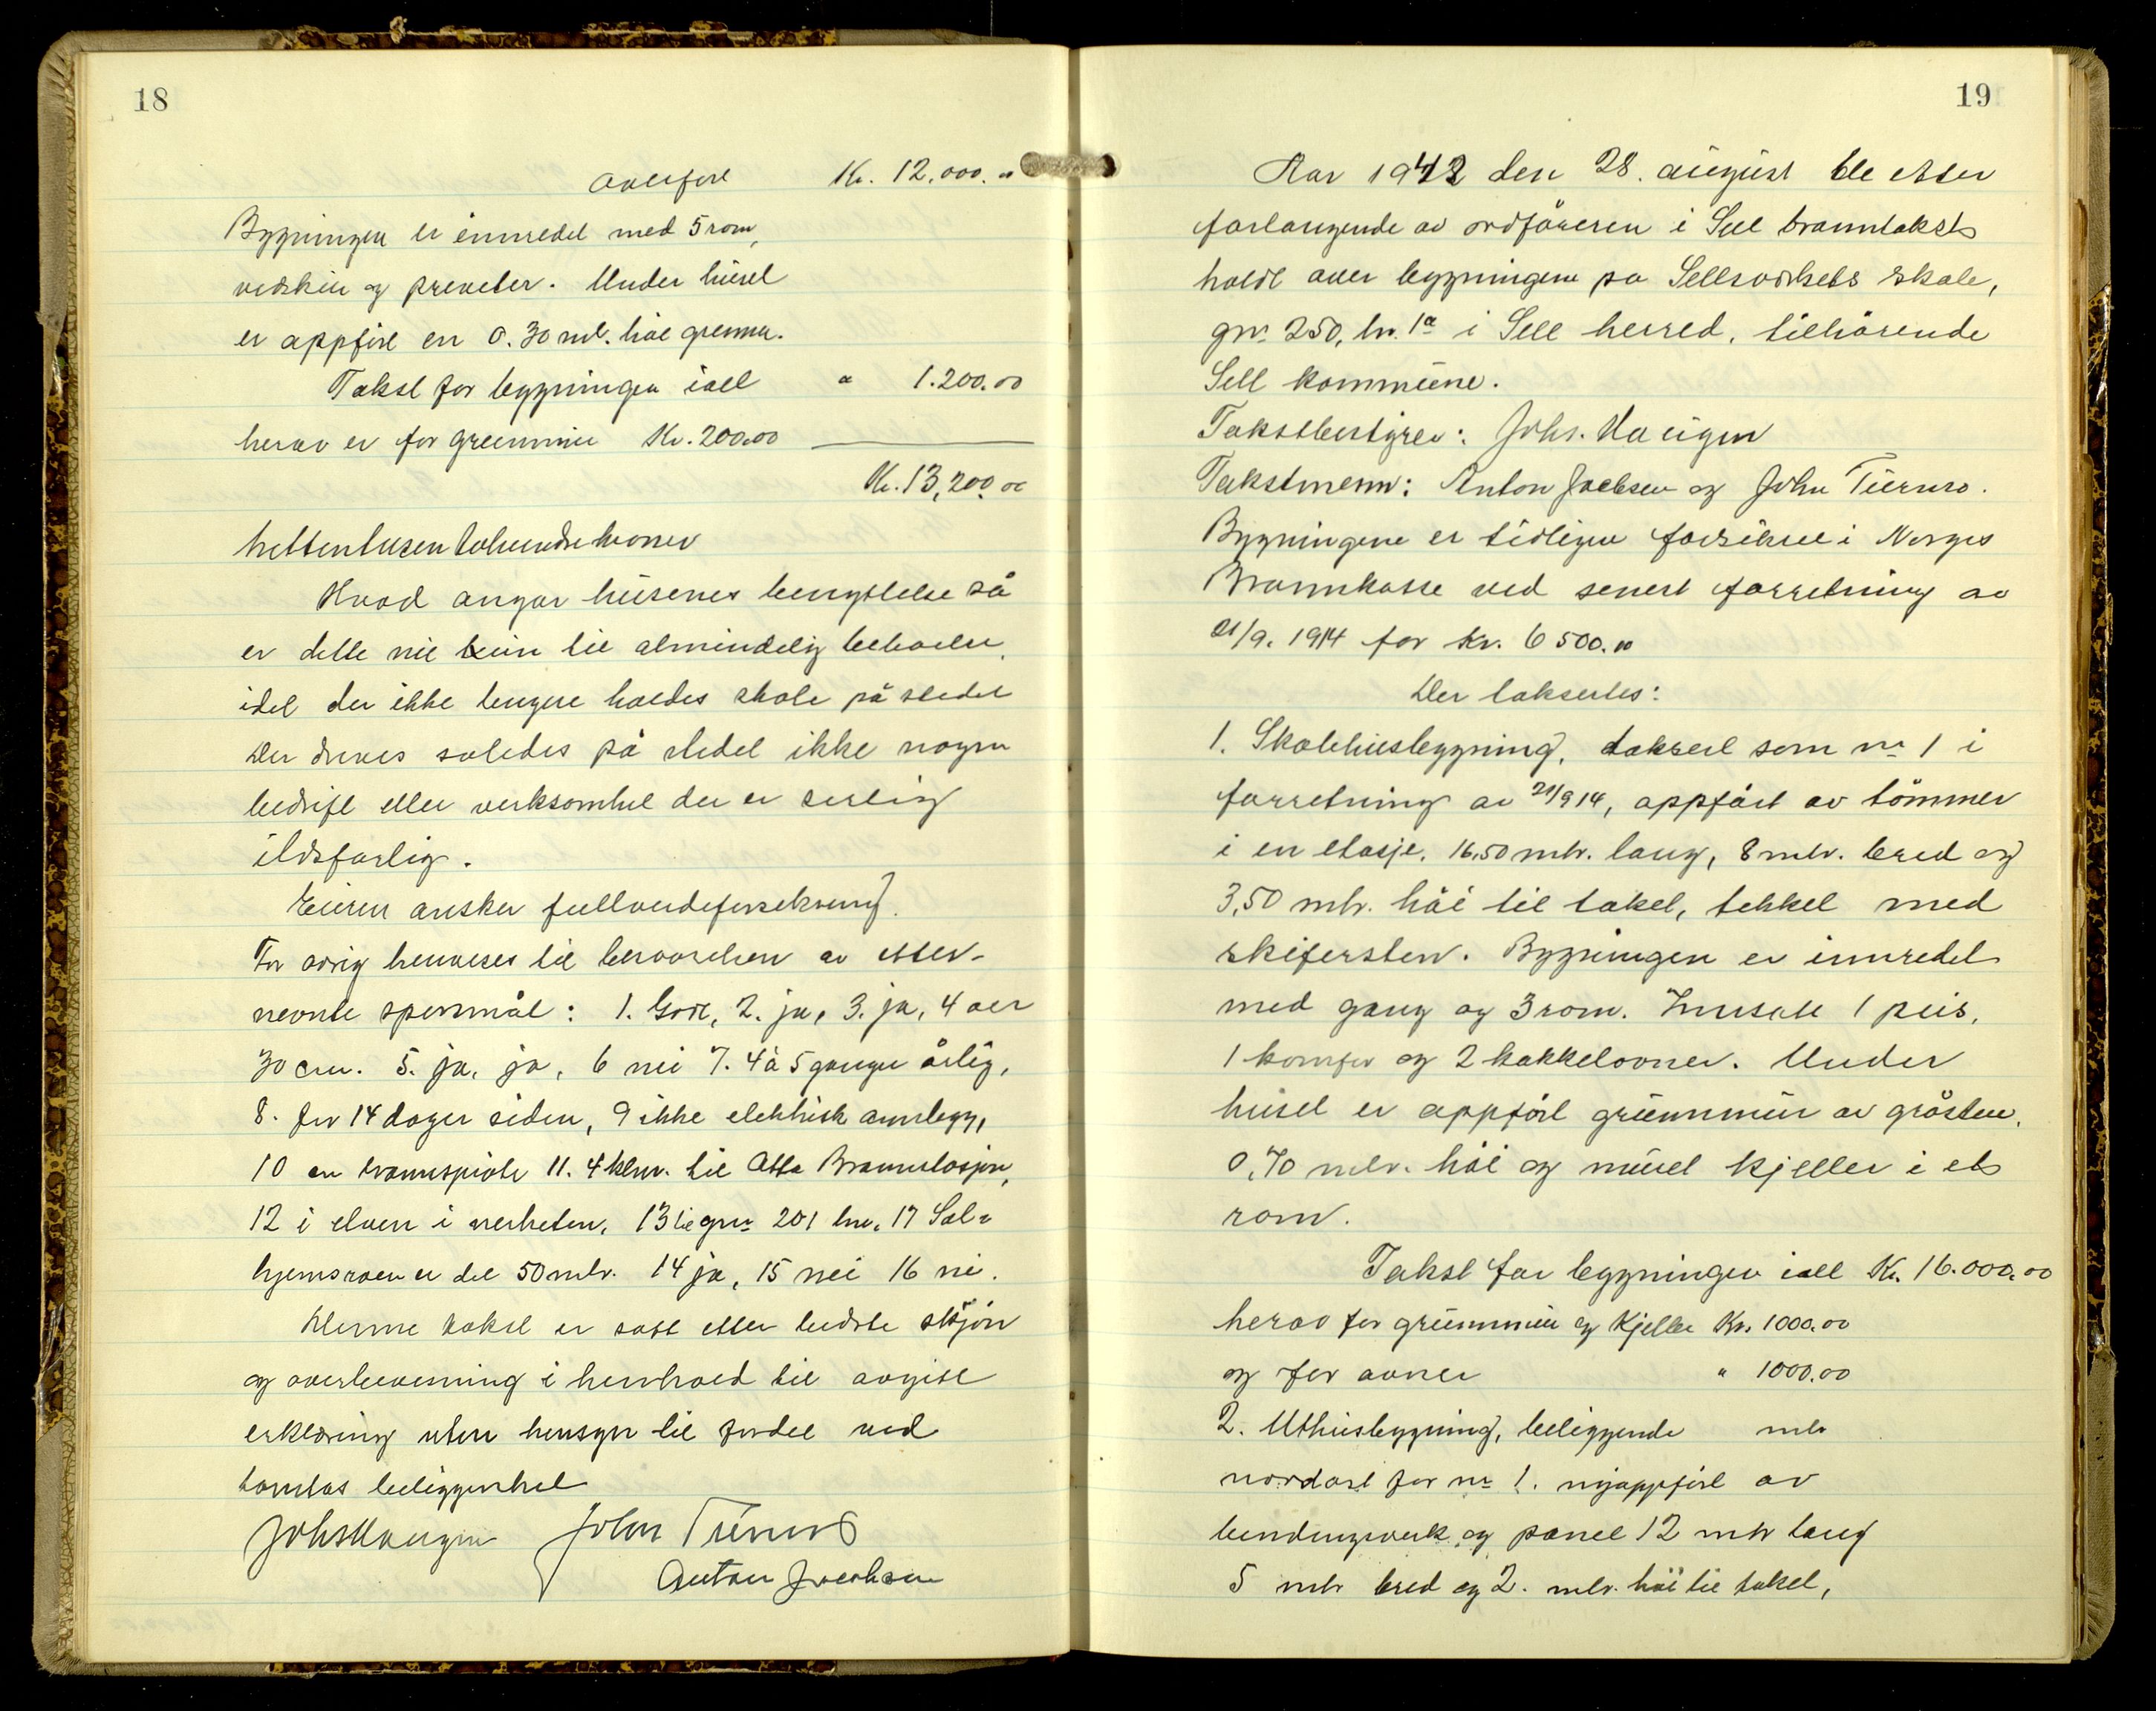 18
Overført Kr. 12.000.00
Bygningen er innredet med 5 rom,
vedskur og preveter. Under huset
er oppført en 0.30 mtr. høi grunnmur.
Takst for bygningen ialt " 1.200.00
herav er for grunnmur Kr. 200.00
Kr. 13,200.00
trettentusen tohundre kroner
Hvad angår husenes benyttelse så
er dette nu kun til almindelig beboelse,
idet der ikke lengere holdes skole på stedet
Der drives således på stedet ikke nogen
bedrift eller verksomhet der er serlig
ildsfarlig.
Eieren ønsker fullverdeforsikring.
For øvrig henvises til besvarelsen av efter-
nevnte spørsmål: 1. Godt, 2. ja, 3. ja, 4 over
30 cm. 5. ja, ja, 6 nei 7. 4 à 5 ganger årlig,
8. for 14 dager siden, 9 ikke elektrisk annlegg,
10 en brannsprøite 11. 4 klm. til Otta Brannstasjon,
12 i elven i nerheten, 13 til gnr 201 bnr. 17 Sol=
hjemsroen er det 50 mtr. 14 ja, 15 nei 16 nei.
Denne takst er satt efter bedste skjøn
og overbevisning i henhold til avgitt
erklæring uten hensyn til fordel ved
tomtas beliggenhet
Johs Haugen John Turnus
Anton Jacobsen
19
Aar 1942 den 28. august ble etter
forlangende av ordføreren i Sell branntakst
holdt over bygningene på Sellsverkets skole,
gnr. 250, bnr. 1a i Sell herred, tilhørende
Sell kommune.
Takstbestyrer: Johs. Haugen
Takstmenn: Anton Jacobsen og John Turnus.
Bygningene er tidligere forsikret i Norges
Brannkasse ved senest forretning av
21/9. 1914 for kr. 6500.00
Der taksertes:
1. Skolehusbygning, taksert som nr 1 i
forretning av 21/9 14, oppført av tömmer
i en etasje, 16,50 mtr. lang, 8 mtr. bred og
3,50 mtr. höi til taket, tekket med
skifersten. Bygningen er innredet
med gang og 3 rom. Innsatt 1 peis,
1 komfyr og 2 kakkelovner. Under
huset er oppført grunnmur av gråsten,
0,70 mtr. höi og muret kjeller i et
rom.
Takst for bygningen ialt Kr. 16.000,00
herav for grunnmur og kjeller Kr. 1000.00
og for ovner " 1000.00
2. Uthusbygning, beliggende mtr
nordost for nr 1. nyoppført av
bindingsverk og panel 12 mtr lang
5 mtr bred og 2. mtr. höi til taket,